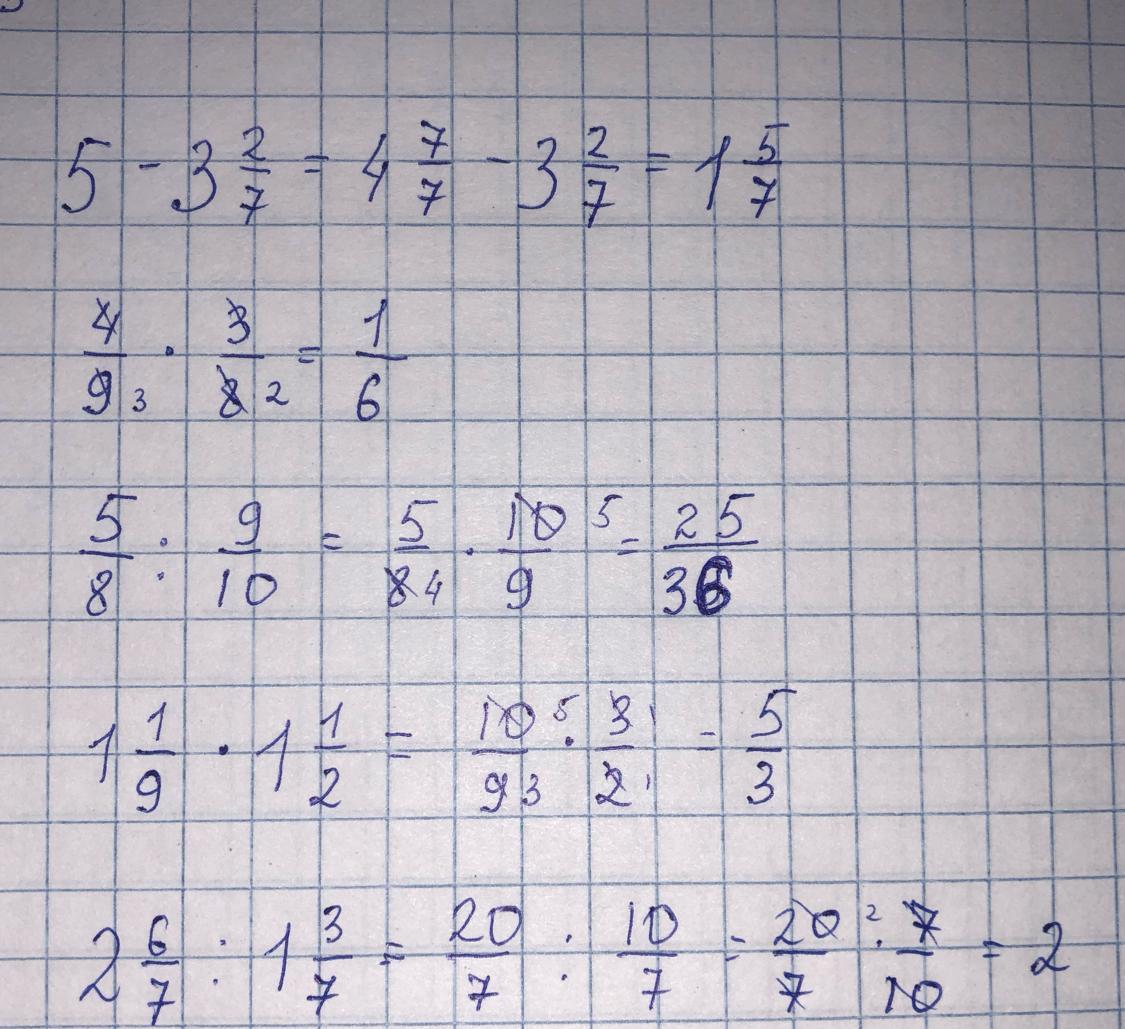 5 - 3 2/7 = 4 7/7 - 3 2/7 = 1 5/7
4/9 3 · 3/8 2 = 1/6
5/8 : 9/10 = 5/8 4 · 10/9 5 = 25/36
1 1/9 · 1 1/2 = 10 5/9 3 · 3 1/2 1 = 5/3
2 6/7 : 1 3/7 = 20/7 : 10/7 = 20 2/7 · 7/10 = 2